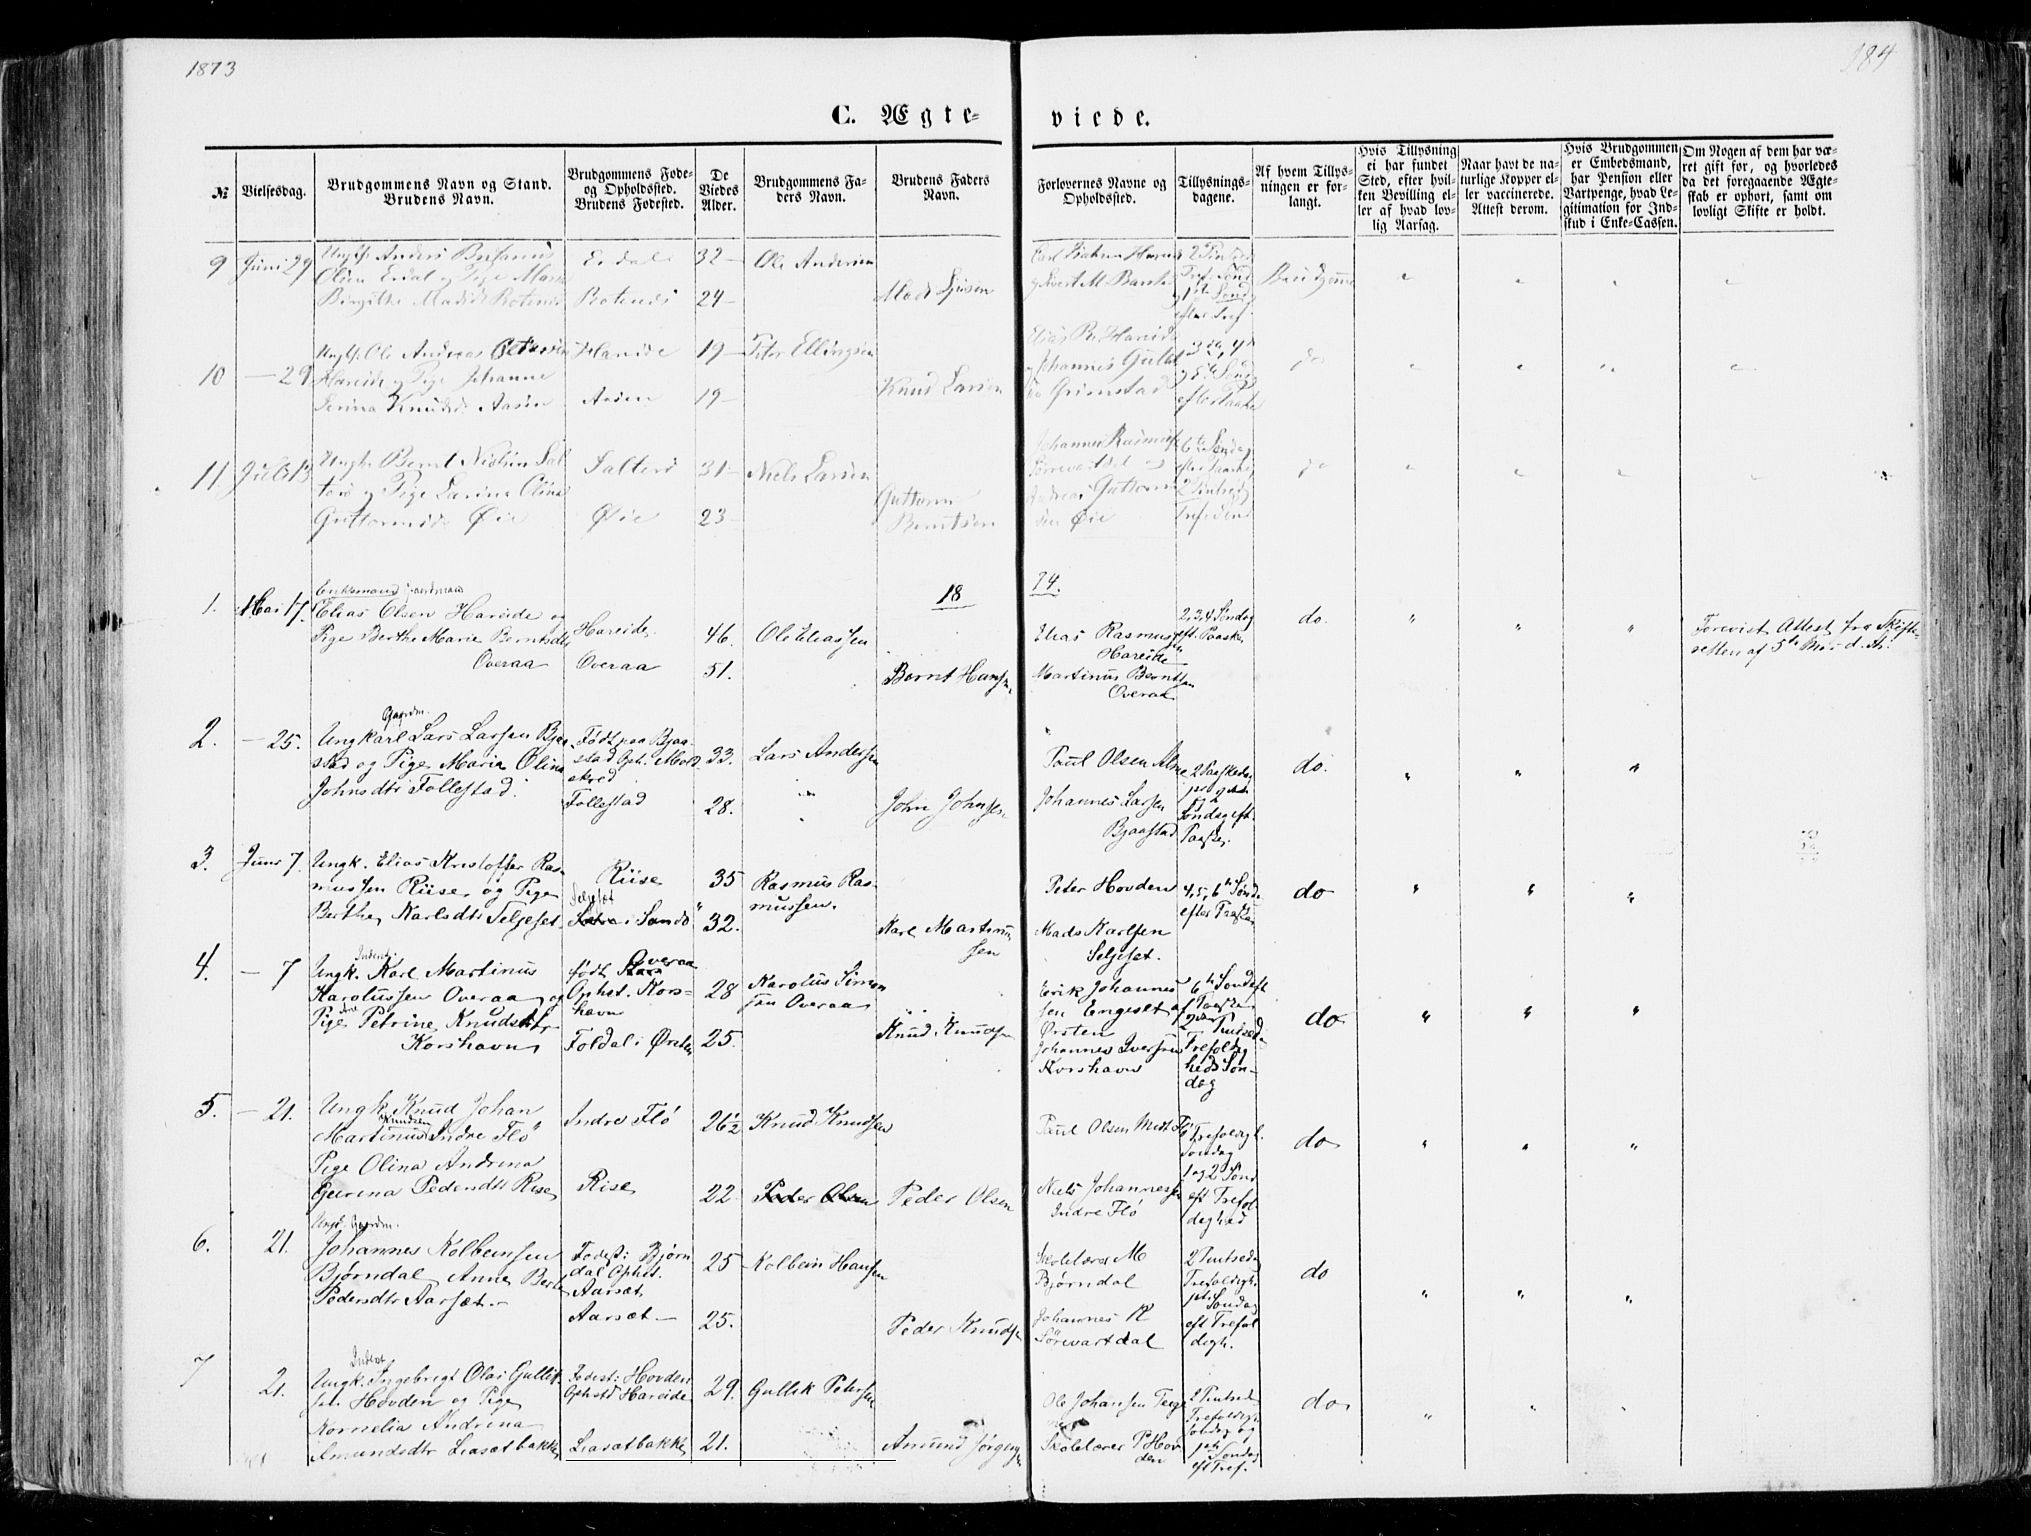 1873
184
C. Ægte-
viede.
№
Vielsesdag.
Brudgommens Navn og Stand.
Brudens Navn.
Brudgommens Føde-
og Opholdssted.
Brudens Fødested.
De
Viedes
Alder.
Brudgommens Fa-
ders Navn.
Brudens Faders
Navn.
Forlovernes Navne og
Opholdssted.
Tillysnings-
dagene.
Af hvem Tillys-
ningen er for-
langt.
Hvis Tillysning
ei har fundet
Sted, efter hvil-
ken Bevilling el-
ler af hvad lov-
lig Aarsag.
Naar havt de na-
turlige Kopper el-
ler vaccinerede.
Attest derom.
Hvis Brudgommen
er Embedsmand,
har Pension eller
Vartpenge, hvad Le-
gitimation for Ind-
skud i Enke-Cassen.
Om Nogen af dem har væ-
ret gift før, og hvorledes
da det foregaaende Ægte-
skab er ophørt, samt om
lovligt Skifte er holdt.
9 Juni 29 Ungk. Anders
Olsen Erdal og Pige
Birgithe Madsd. Rotenes
Erdal 32
Rotenes 24
Ole Andersen
Mads
10 29 Ungk. Ole Andreas
Hareide og Pige Johanne
Serina Knudsd. Aasen
Hareide 19
Aasen 19
Peter Ellingsen
Knud Larsen
Elias R. Hareide
Johannes
Grimstad
do
11 Juli 13 Ungk. Bernt Nielsen
og Pige Larina Olina
Guttormsd. Øie
31
Øie 23
Niels Larsen
Guttorm
Berntsen
Johannes Rasmus
Andreas Guttorm
sen Øie
6te Søndag
do
18
74.
1. Mai 17. Enkemand Gaardmand
Elias Olsen Hareide og
Pige Berthe Marie Berntsdtr
Overaa
Hareide 46.
Overaa 51.
Ole Eliassen
Bernt Hansen
Elias Rasmussen
Hareide
Martinus Berntsen
Overaa
2, 3, 4 Søndag
eft. Paaske
do.
Forevist Attest fra Skifte-
retten af 5te Mai d. A.
2. — 25. Gaardm.
Ungkarl Lars Larsen Bjaa-
stad og Pige Maria Olina
Johnsdtr Follestad.
Født paa Bjaa-
stad Oph. Mold
skred
Follestad
33.
28.
Lars Andersen
John Johnsen
Paul Olsen Alme
Johannes Larsen
Bjaastad
2 Paaskedag
Søndag eft.
Paaske.
do.
3. Juni 7. Ungk. Elias Kristoffer Ras-
mussen Riise og Pige
Berthe Karlsdtr Seljeset
Riise
Seljeset
35
32.
Rasmus Ras-
mussen.
Karl Martinus
sen
Peter Hovden
Mads Karlsen
Seljeset.
4, 5, 6te Sønd.
efter Paaske
do
4. — 7 Inderst
Ungk. Karl Martinus
Karolussen Overaa og
Pige Ane Petrine Knudsdtr
Korshavn
født Overaa
Ophst. Kors-
havn
Foldal i Ørsten
28
25.
Karolus Simon
sen Overaa
Knud Knudsen
Erik Johannes
sen Engeset af
Ørsten
Johannes Iversen
Korshavn
6te Sønd eft
Paaske
2den Pintsed.
Trefoldig
heds Søn-
dag
do
5. — 21. Ungk. Knud Johan
Martinus Knudsen Indre Flö
Pige Olina Andrina
Geerina Pedersdtr Rise
Indre Flö
Rise
26½
22
Knud Knudsen
Peder Olsen
Peder Olsen
Paul Olsen
Niels Johannessen
Indre Flö
Trefoldigh.
Søndag
1 og 2 Sønd
eft Trefol-
dighed
do
6. 21. Ungk. Gaardm.
Johannes Kolbeinsen
Bjørndal Anne Berte
Pedersdtr Aarsæt.
Fødest: Bjørn
dal Ophst.
Aarsæt
Aarsæt
25
25.
Kolbein Hansen
Peder Knudsen
Skolelærer M
Bjørndal
Johannes K
Sörevartdal
2 Pintsedag
Trefoldigh.
Søndag
eft Trefol
digh.
do
7 21. Inderst
Ungk. Ingebregt Olai Gullik
sen Hovden og Pige
Kornelia Andrina
Amundsdtr Liasætbakke
Fødest: Hovden
Ophsted Hareide
Liasætbakke
29.
21.
Gullik Petersen
Amund Jørgensen
Ole Johansen
Skolelærer P. Hov
den
2 Pintsed.
Trefoldigh.
Søndag og
Søndag
eft Tref.
do